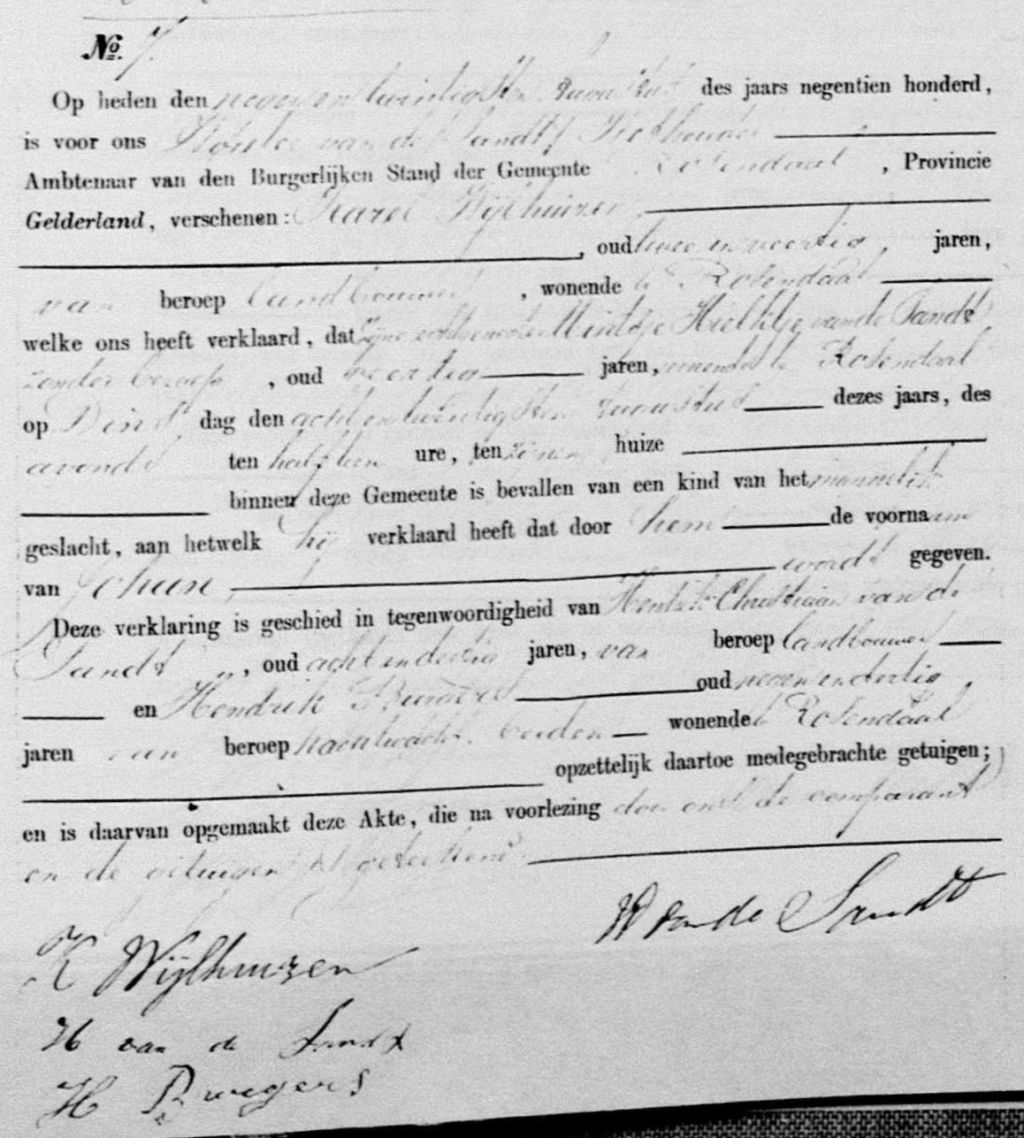 No. 7.
Op heden den negen en twintigsten Augustus des jaars negentien honderd,
is voor ons Wouter van de Sandt, Wethouder
Ambtenaar van den Burgerlijken Stand der Gemeente Rosendaal, Provincie
Gelderland, verschenen: Karel Wijlhuizen
, oud twee en veertig, jaren,
van beroep landbouwer, wonende te Rosendaal
welke ons heeft verklaard, dat zijne echtgenoote van de Sandt
zonder beroep, oud veertig jaren, wonende te Rosendaal
op Dins dag den acht en twintigsten Augustus dezes jaars, des
avonds ten half tien ure, ten zijnen huize
binnen deze Gemeente is bevallen van een kind van het mannelijk
geslacht, aan hetwelk hij verklaard heeft dat door hem de voornaam
van Johan wordt gegeven.
Deze verklaring is geschied in tegenwoordigheid van Hendrik Christiaan van de
Sandt, oud acht en dertig jaren, van beroep landbouwer
en Hendrik Burgers oud negen en dertig
jaren van beroep nachtwacht, beiden wonende te Rosendaal
opzettelijk daartoe medegebrachte getuigen;
en is daarvan opgemaakt deze Akte, die na voorlezing door ons, de comparant
en de getuigen is geteekend
W van de Sandt
K Wijlhuizen
H van de Sandt
H Burgers